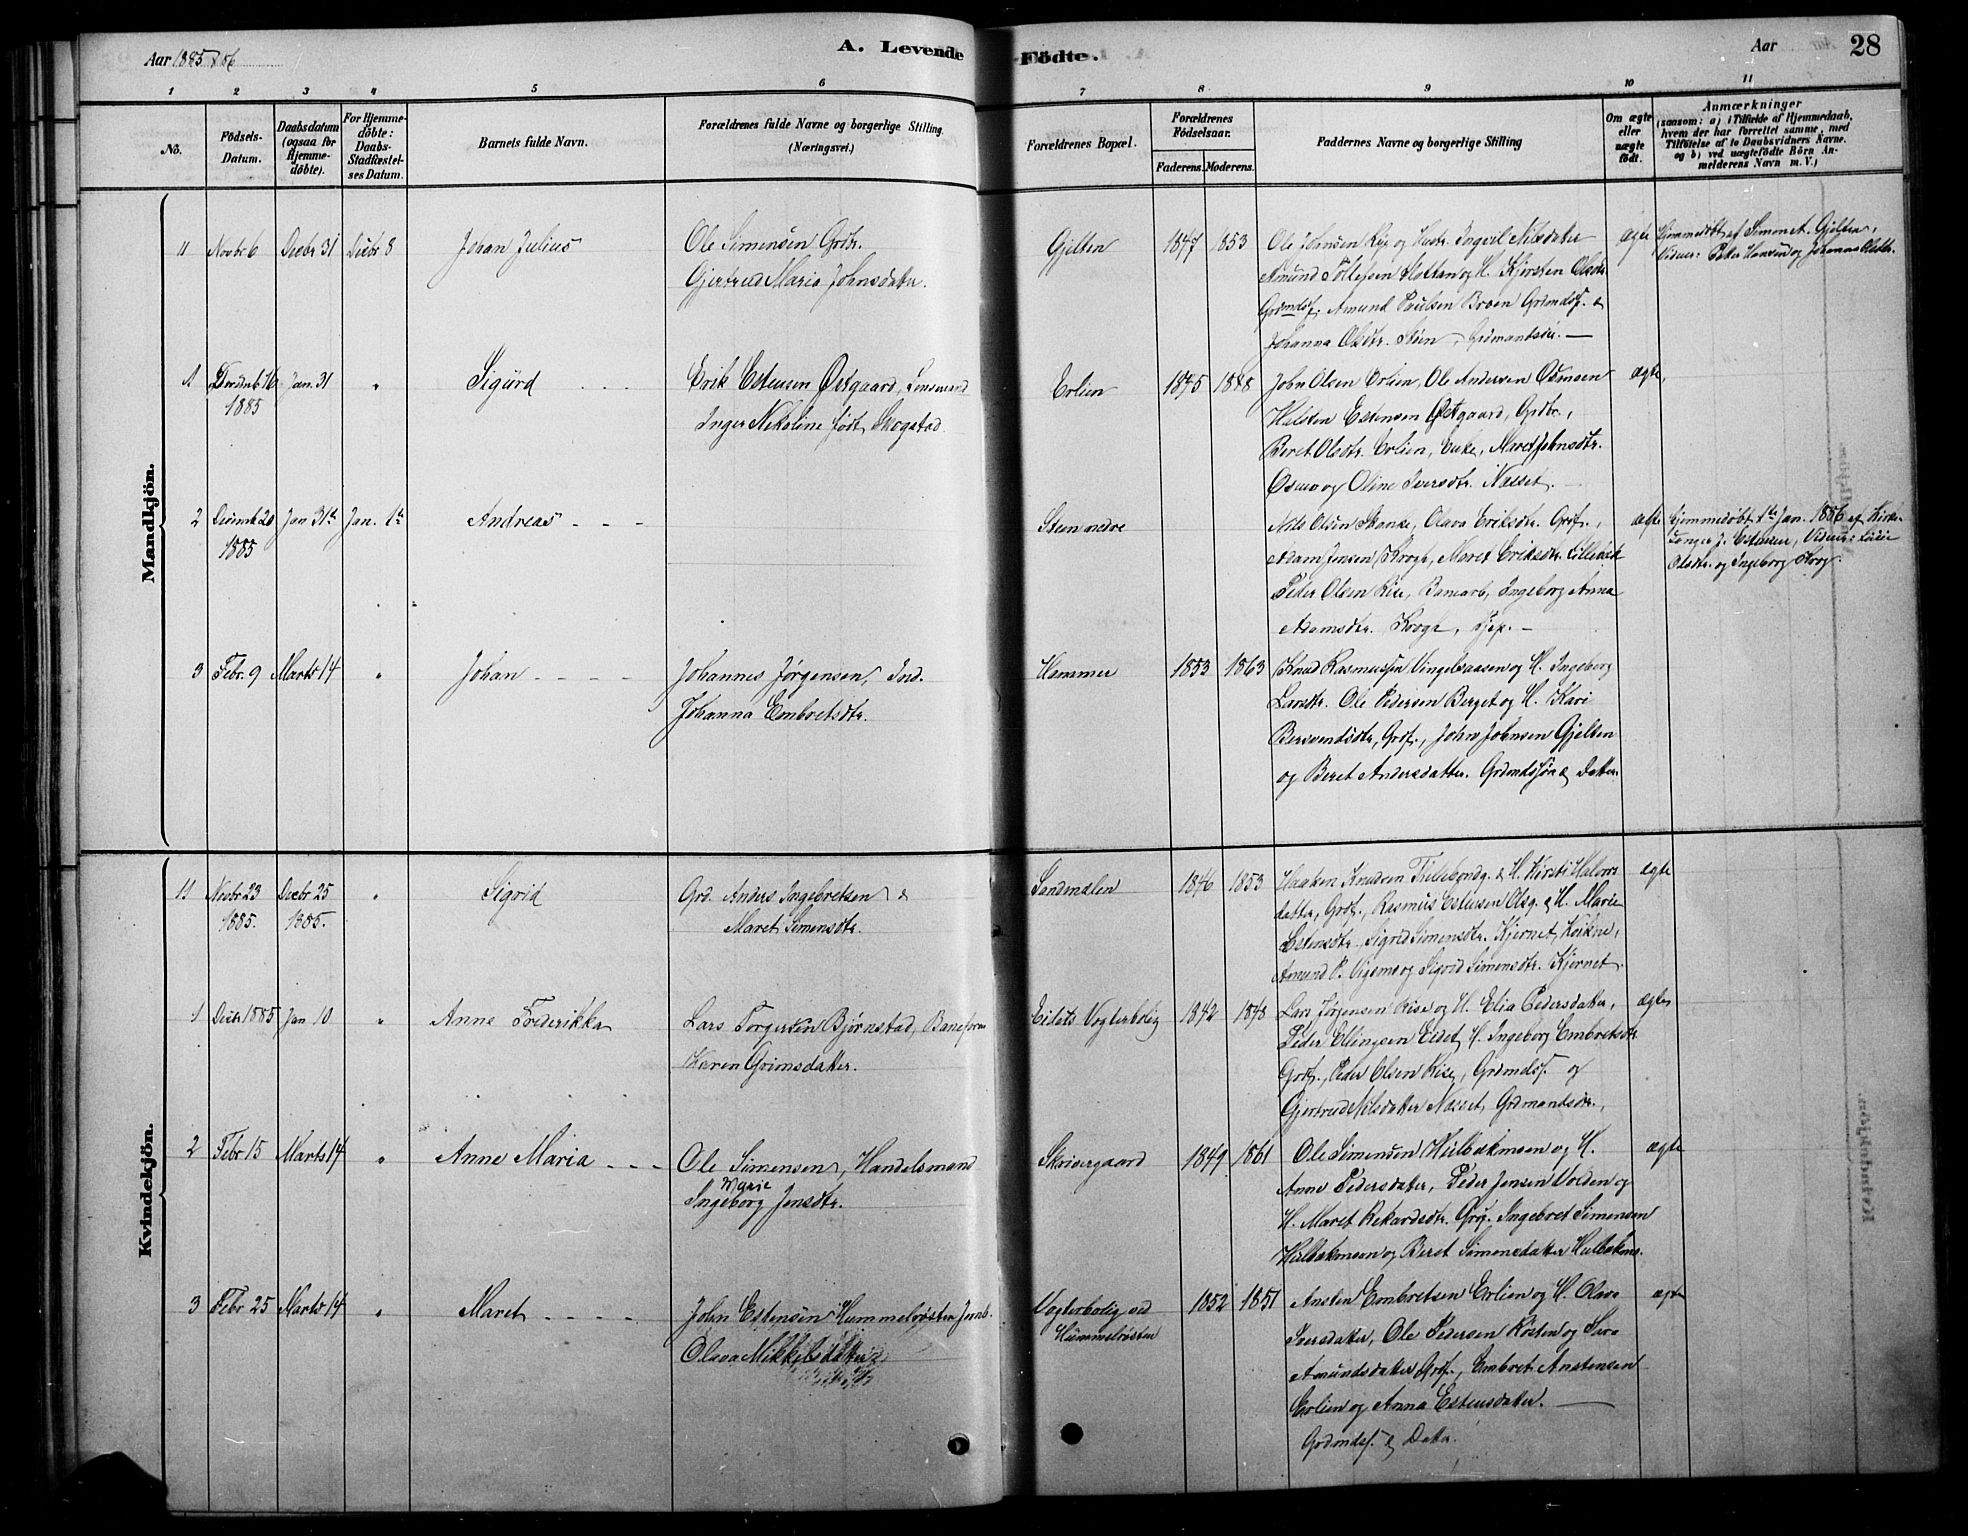 Aar 1885 & 86
A. Levende Födte.
Aar
28
1 2 3 4 5 6 7 8 9 10 11
No.
Födsels-Datum.
Daabsdatum (ogsaa for Hjemmedöbte).
For Hjemmedöbte: Daabs-Stadfæstelses Datum.
Barnets fulde Navn.
Forældrenes fulde Navne og borgerlige Stilling. (Næringsvei.)
Forældrenes Bopæl.
Forældrenes Födselsaar.
Faderens. Moderens.
Faddernes Navne og borgerlige Stilling
Om ægte eller uægte födt.
Anmærkninger
(saasom: a) i Tilfælde af Hjemmedaab,
hvem der har forrettet samme, med
Tilföielse af to Daabsvidners Navne.
og b) ved uægtefödte Börn An-
melderens Navn m. V.)
Mandkjön.
11 Novbr 6 Decbr 31 Decbr 8 Johan Julius
Ole Simensen Grdbr.
Gjertrud Maria Johnsdatter.
Gjelten 1847 1853
Ole Johnsen Rise og Hustr. Ingvil Nilsdatter
Amund Tollefsen Plottan og H. Kjersten Olsdtr.
Grdmdsf. Amund Paulsen Broen Grdmdsf. &
Johanna Olsdtr. Steen, Grdmandsdtr. —
ægte
Hjemmedøbt af Simon E. Gjelten,
Vidner: Peter Hansen og Johanna Olsdtr.
1 Decembr 16 1885 Jan. 31 " Sigurd
Erik Estensen Østgaard, Lensmand
Inger Nikoline født Skogstad.
Erlien 1845 1848
John Olsen Erlien, Ole Andersen Osmoen
Halsten Estensen Østgaard, Grdbr.,
Beret Olsdtr. Erlien, Enke, Maret Johnsdtr.
Osmo og Oline Iversdtr. Næsset.
ægte,
2 Decembr 20 1885 Jan 31te Jan. 1te Andreas
Steen nedre
Nils Olsen Skanke, Olava Eriksdtr. Grdf.,
Adam Jensen Krogh, Maret Eriksdtr. Lillevold
Peder Olsen Rise, Banearb, Ingeborg Anna
Adamsdtr. Krogh, Tjep. —
ægte
Hjemmedøbt 1te Jan. 1886 af Kirke-
sanger J. Estensen, Vidner:
Olsdtr. og Ingeborg Krog.
3 Febr. 9 Marts 14 " Johan
Johannes Jørgensen, Ind.
Johanna Embretsdtr.
Hammer 1853 1863
Knud Rasmussen Vingelsaasen og H. Ingeborg
Larsdtr. Ole Pedersen Berget og H. Kari
Bersvendsdtr, Grdf., John Johnsen Gjelten
og Beret Andersdatter. Grdmdssøn & Datter.
Kvindekjön.
11 Novbr 23 1885. Decbr 25 1885. " Sigrid
Grd. Anders Ingebretsen &
Maret Simensdtr.
Sandmælen 1846 1853
Haaken Knudsen & H. Kirsti Halvors
datter, Grdf., Rasmus Estensen & H. Marie
Estensdtr., Sigrid Simensdtr. Kjernet, Kvikne,
Amund P. og Sigrid Simensdtr. Kjernet.
ægte
1 Decbr 1885 Jan 10 " Anne Frederikka
Lars Torgersen Bjørnstad, Baneform
Karen Grimsdatter.
Eidets Vogterbolig 1842 1848
Lars Jørgensen Rise og H. Elia Pedersdatter,
Peder Ellingsen Eidet, H. Ingeborg Embretsdtr
Grdf., Peder Olsen Rise, Grdmdsf. og
Gjertrud Nilsdatter Næsset, Grdmandsdtr.,
ægte
2 Febr 15 Marts 14 " Anne Maria
Ole Simensen, Handelsmand
Marie
Ingeborg Jensdtr.
Skrivergaard 1849 1861
Ole Simensen Hulbækmoen og H.
Anne Pedersdatter, Peder Jensen Volden og
H. Maret Rekardsdtr. Grdf. Ingebret Simensen
Hulbækmoen og Beret Simensdatter Hulbækmo.
ægte
3 Febr 25 Marts 14 " Maret
John Estensen Hummelvosten Jernb.
Olava Mikkelsdatter
Vogterbolig ved Hummelvosten 1852 1851
Ansten Embretsen Erlien og H. Olava
Iversdatter, Ole Pedersen Røsten og Sara
Amundsdatter Grdf., Embret Anstensen
Erlien og Anna Estensdatter. —
Grdmdsf. & Datter.
ægte